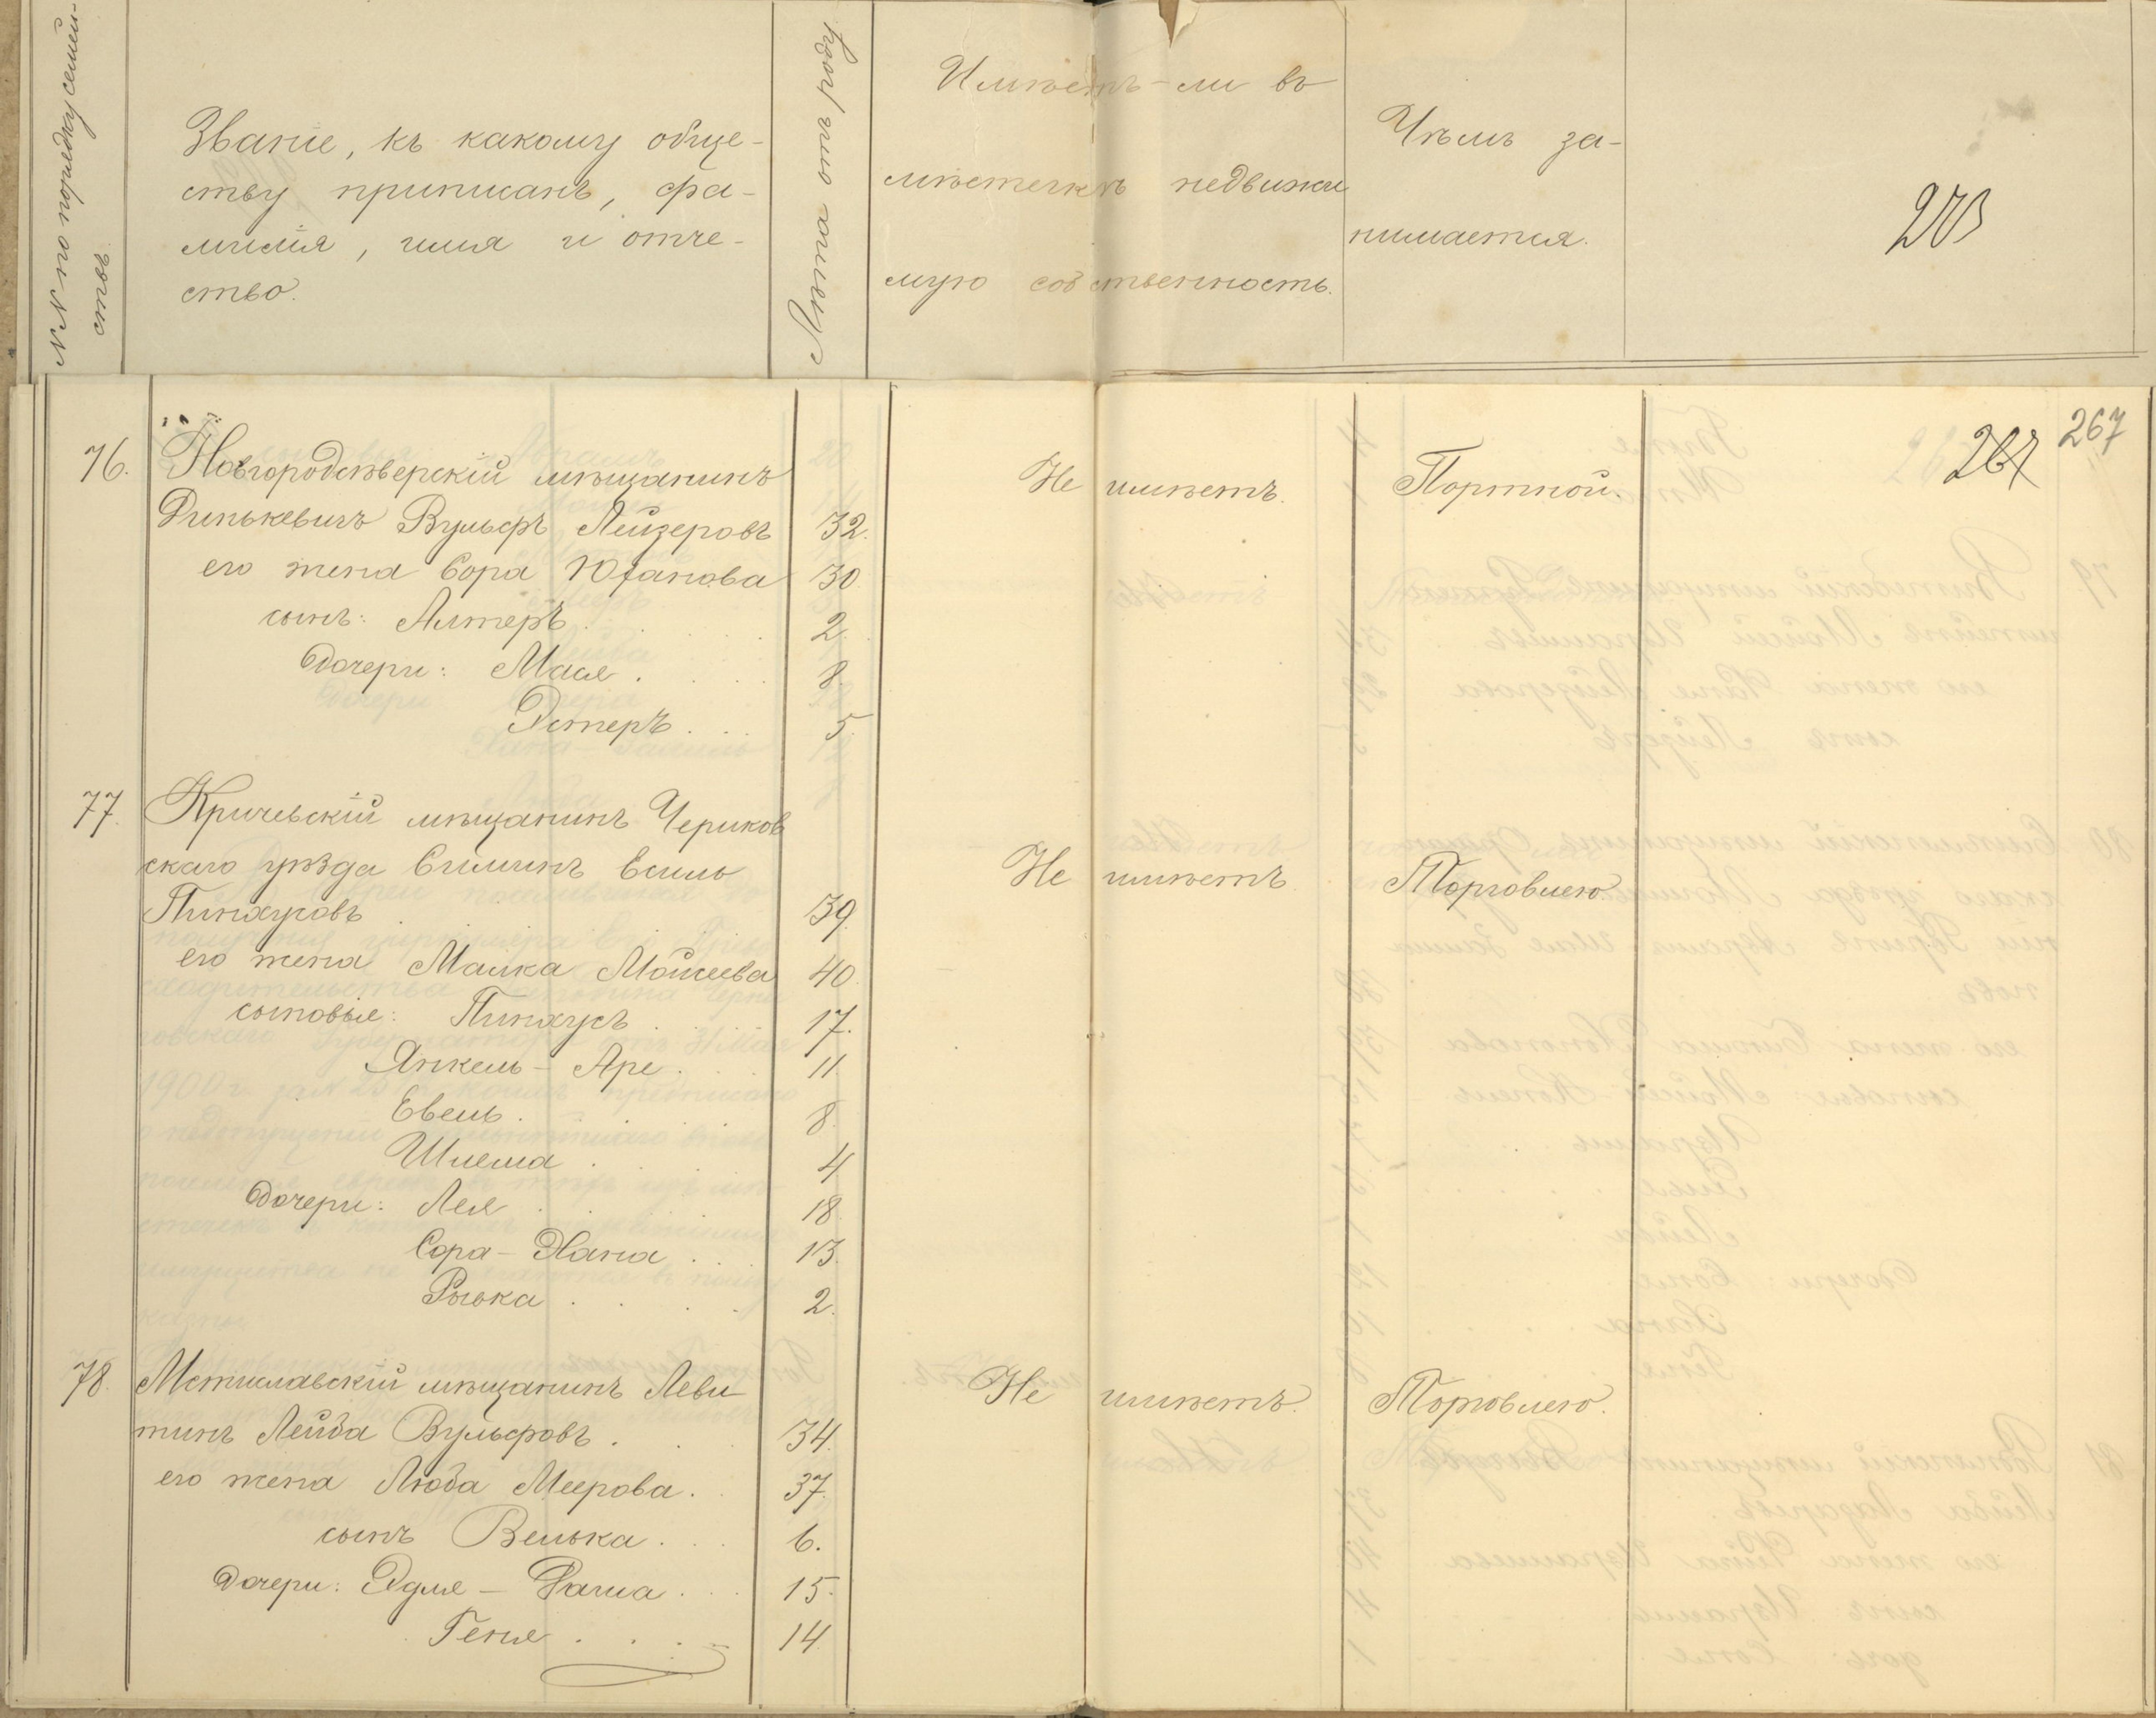 №№ по порядку семей-
ствъ.
Званіе, къ какому обще-
ству приписанъ, фа-
милія, имя и отче-
ство.
Сколько отъ роду
Имѣетъ-ли въ
мѣстечкѣ недвижи
мую собственность.
Чѣмъ за-
нимается.
203
267
267
76. Новгородсѣверскій мѣщанинъ
Динькевичъ Вульфъ Лейзеровъ 32.
Не имѣетъ. Портной.
его жена Сора Юханова 30
сынъ: Алтеръ 2.
Дочери: Мася 8.
Эстеръ 5.
77. Кричевскій мѣщанинъ Чериков
скаго уѣзда Симинъ Есиль
Пинхусовъ 39.
Не имѣетъ Торговлею
его жена Малка Мойсеева 40.
сыновья: Пинхусъ 17.
Янкель - Аре 11
Евель 8.
Шлема 4
Дочери: Лея 18
Сора - Хана 13.
Рыька 2.
78. Мстиславскій мѣщанинъ Леви
тинъ Лейба Вульфовъ 34.
Не имѣетъ. Торговлею.
его жена Люба Меерова 37.
сынъ Велька 6.
Дочери: Эдля - Фаша 15.
Геня 14.